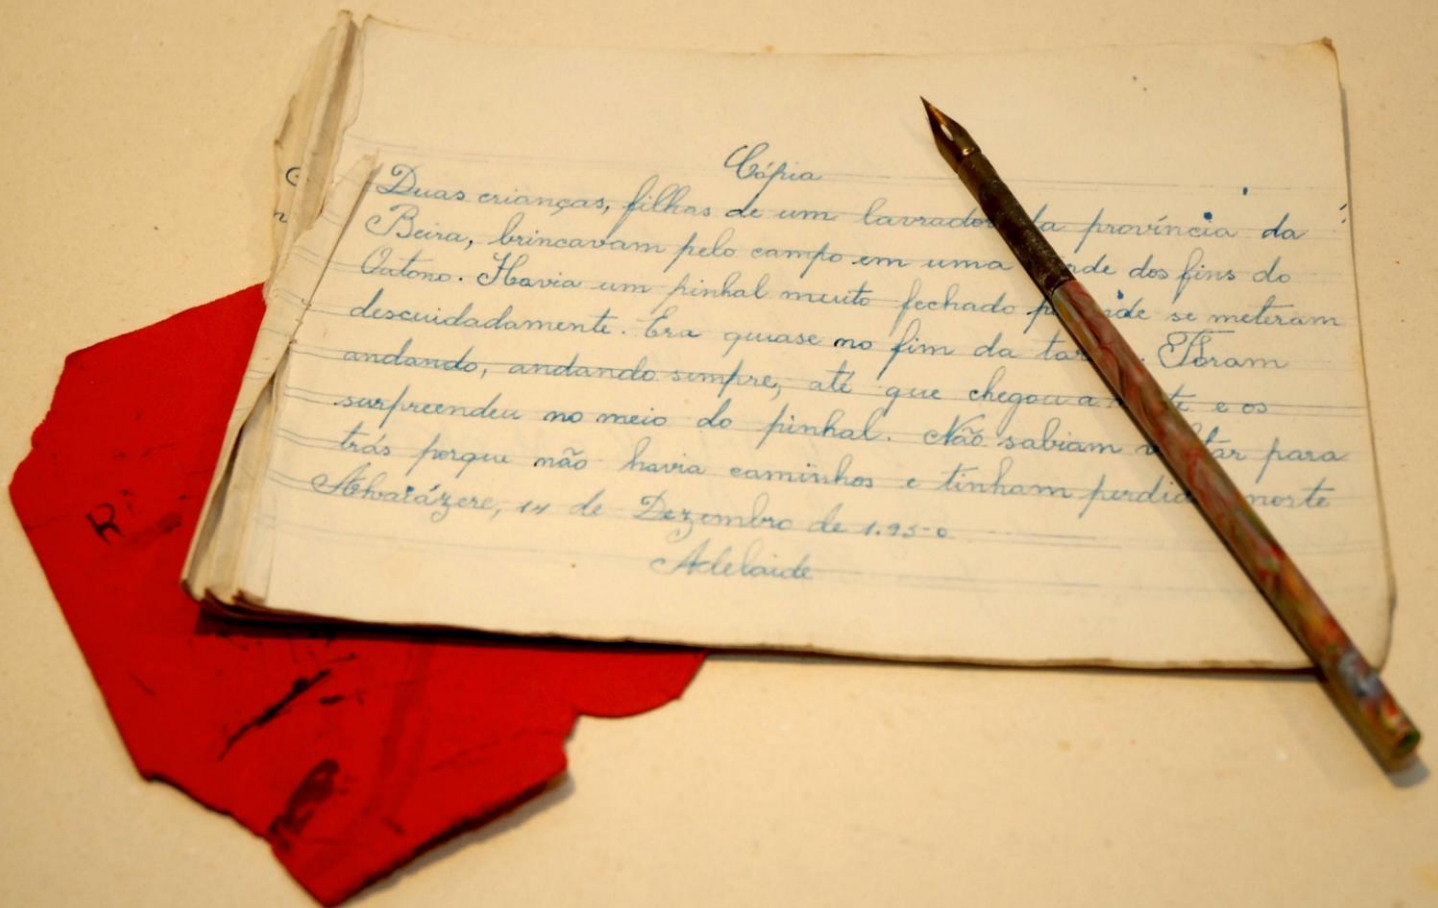 Cópia
Duas crianças, filhas de um lavrador da província da
Beira, brincavam pelo campo em uma tarde dos fins do
Outono. Havia um pinhal muito fechado por onde se meteram
descuidadamente. Era quase no fim da tarde. Foram
andando, andando sempre, até que chegou a noite e os
surpreendeu no meio do pinhal. Não sabiam voltar para
trás porque não havia caminhos e tinham perdido norte
Alvaiázere, 14 de Dezembro de 1.950
Adelaide
R